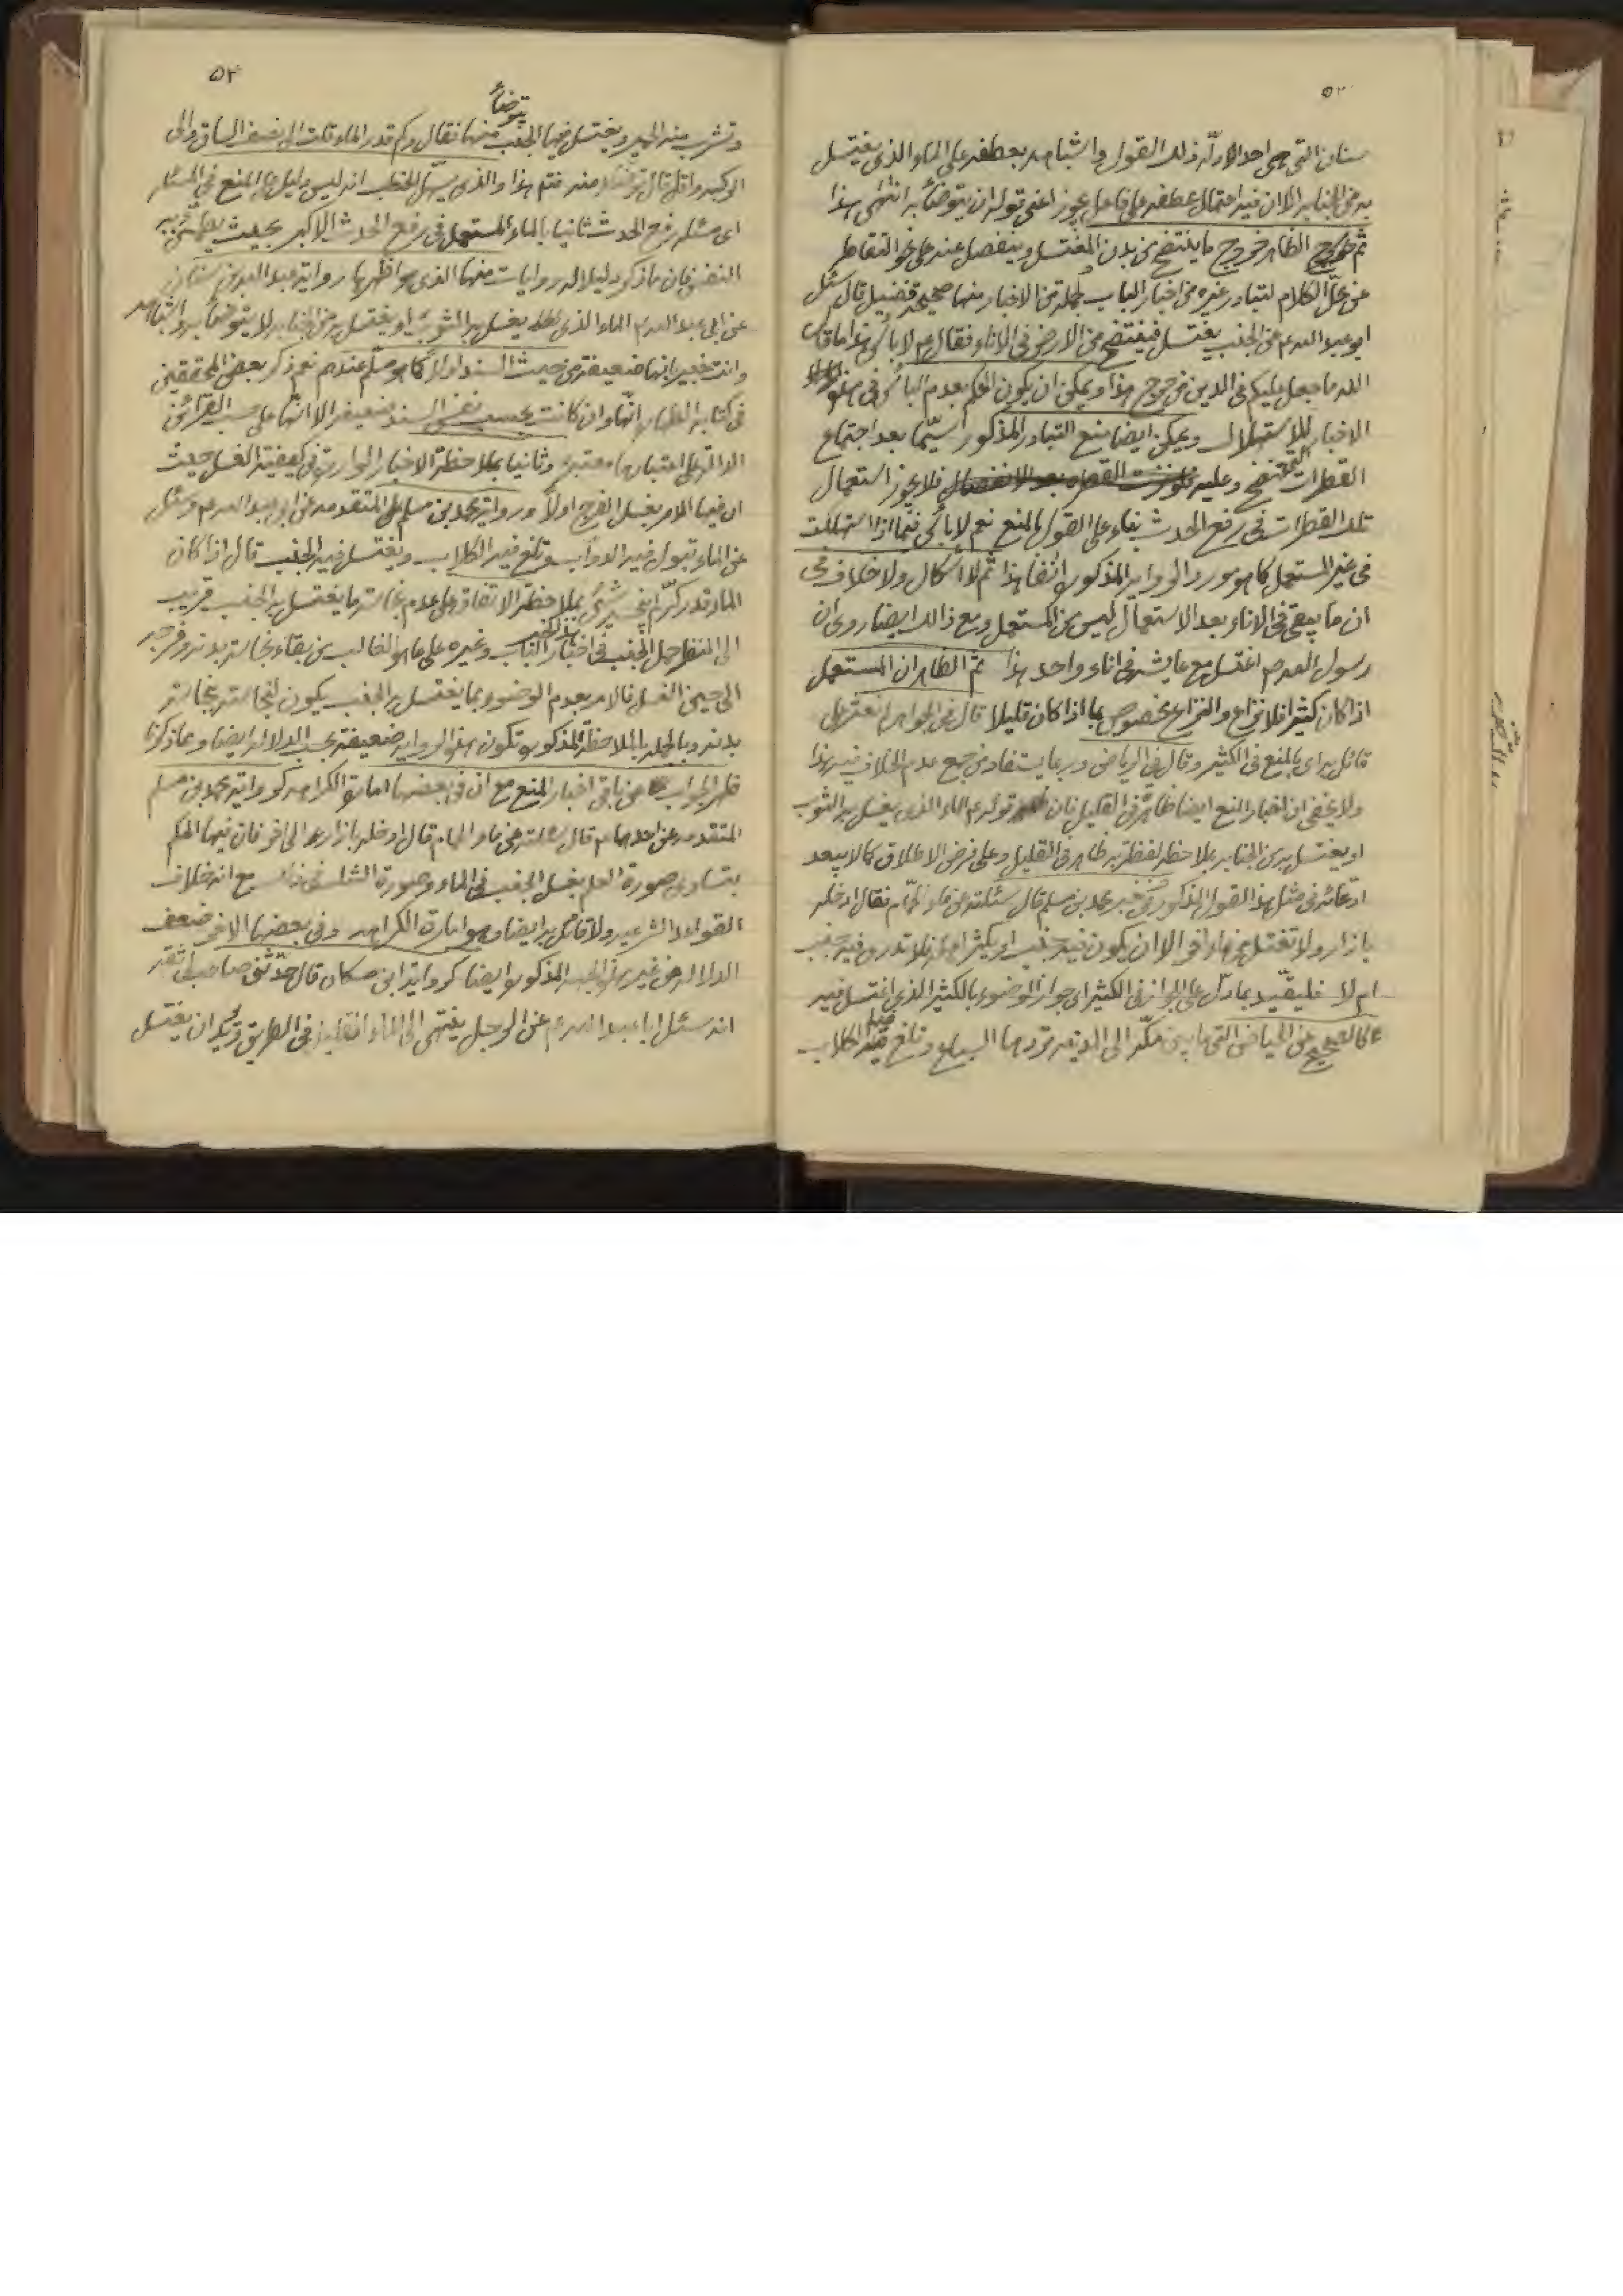 سنان التی هی احد الادلّه لذلک القول و اشباهه بعطفه علی الماء الذی یغتسل
به من الجنابه الا ان فیه احتمال عطفه علی فاعل یجوز اعنی قوله ان یتوضأ به انتهی هذا
ثم الظاهر خروج ما ینتضح من بدن المغتسل و ینفصل عنه علی نحو التقاطر
عن محلّ الکلام لتبادر غیره من اخبار الباب و لجملة من الاخبار منها صحیحه فضیل قال سئل
ابو عبد الله ع عن الجنب یغتسل فینتضح من الارض فی الاناء فقال ع لا بأس هذا ما قال
الله ما جعل علیکم فی الدین من حرج هذا و یمکن ان یکون الحکم بعدم البأس فی هذه
الاخبار للاستهلاک و یمکن ایضا منع التبادر المذکور سیّما بعد اجتماع
القطرات و علیه فلا یجوز استعمال
تلک القطرات فی رفع الحدث بناء علی القول بالمنع نعم لا بأس فیما اذا استهلکت
فی غیر المستعمل کما هو مورد الروایه المذکوره انفا هذا ثم لا اشکال و لا خلاف فی
ان ما یبقی فی الاناء بعد الاستعمال لیس من المستعمل و مع ذالک ایضا روی ان
رسول الله ص اغتسل مع عایشه فی اناء واحد هذا ثم الظاهر ان المستعمل
اذا کان کثیرا فلا نزاع و النزاع مخصوص بما اذا کان قلیلا قال فی الجواهر لم نعثر علی
قائل یرای بالمنع فی الکثیر و قال فی الریاض و ربما یستفاد من جمع عدم الخلاف فیه هذا
و لا یخفی ان اخبار المنع ایضا ظاهرة فی القلیل فان قوله ع الماء الذی یغسل به الثوب
او یغتسل به من الجنابه بملاحظه لفظة به ظاهر فی القلیل و علی فرض الاطلاق کما لا یبعد
ادعائه فی مثل هذا القول المذکور و فی خبر محمد بن مسلم قال سئلته عن ماء الحمام فقال ادخله
بازار و لا تغتسل من ماء اخر الا ان یکون فیه جنب او یکثر اهله فلا تدری فیه جنب
ام لا فلیقیّد بما دلّ علی الجواز فی الکثیر ای جواز الوضوء بالکثیر الذی اغتسل فیه
کالصحیح عن الحیاض التی ما بین مکّه الی المدینه تردها السباع و تلغ فیه الکلاب
۵۴
یتوضأ
و تشرب منه الحمیر و یغتسل فیها الجنب منها فقال و کم قدر الماء قلت الی نصف الساق و الی
الرکبه و اقل قال توضأ منه فتم هذا و الذی یسهّل الخطب انه لیس دلیل علی المنع فی المسئله
ای مسئله رفع الحدث ثانیا بالماء المستعمل فی رفع الحدث الاکبر بحیث یطمئن به
النفس فان ما ذکر دلیلا له روایات منها الذی هو اظهرها روایة عبد الله بن سنان
عن ابی عبد الله ع الماء الذی یغسل به الثوب او یغتسل به من الجنابه لا یتوضأ به و اشباهه
و انت خبیر بانها ضعیفة من حیث السند اولا کما هو مسلّم عندهم نعم ذکر بعض المحققین
فی کتابه الطهاره انّها و ان کانت بحسب نفس السند ضعیفه الا انّها علی حسب القرائن
الدالة علی اعتبارها معتبرة و ثانیا بملاحظة الاخبار الواردة فی کیفیة الغسل حیث
ان فیها الامر بغسل الفرج اولا و روایة محمد بن مسلم المتقدمه عن ابی عبد الله ع و سئل
عن الماء تبول فیه الدواب و تلغ فیه الکلاب و یغتسل فیه الجنب قال اذا کان
الماء قدر کرّ لم ینجسه شیء بملاحظة الاتفاق علی عدم نجاسة ما یغتسل به الجنب قریب
الی النظر حمل الجنب فی اخبار الباب و غیره علی ما هو الغالب من بقاء نجاسة بدنه و فرجه
الی حین الغسل فالامر بعدم الوضوء بما یغتسل به الجنب یکون لنجاسته بنجاسة
بدنه و بالجمله بالملاحظة المذکوره تکون هذه الروایه ضعیفة بحسب الدلاله ایضا و مما ذکرنا
ظهر الجواب عن باقی اخبار المنع مع ان فی بعضها امارة الکراهه کروایة محمد بن مسلم
المتقدمه عن احدهما ع قال سئلته عن ماء الحمام قال ادخله بازار الی اخر فان فیها الحکم
بتساوی صورة العلم بغسل الجنب فی الماء و صورة الشک فی ذالک مع انه خلاف
القواعد الشرعیه و لا قائل به ایضا و هو امارة الکراهه و فی بعضها الاخر ضعف
الدلاله من غیر الجهه المذکوره ایضا کروایة ابن مسکان قال حدّثنی صاحب لی ثقه
انه سئل ابا عبد الله ع عن الرجل ینتهی الی الماء القلیل فی الطریق و یرید ان یغتسل